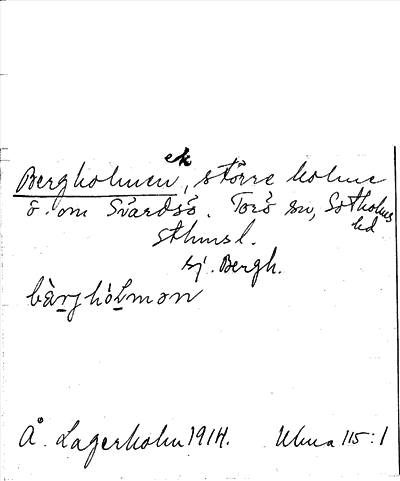 ek
Bergholmen, större holme
ö. om Svärdsö. Torö sn, Sotholms
hd
Sthmsl.
sj. Bergh.
bàrjhól̠mən
Å. Lagerholm 1914. Uhma 115:1